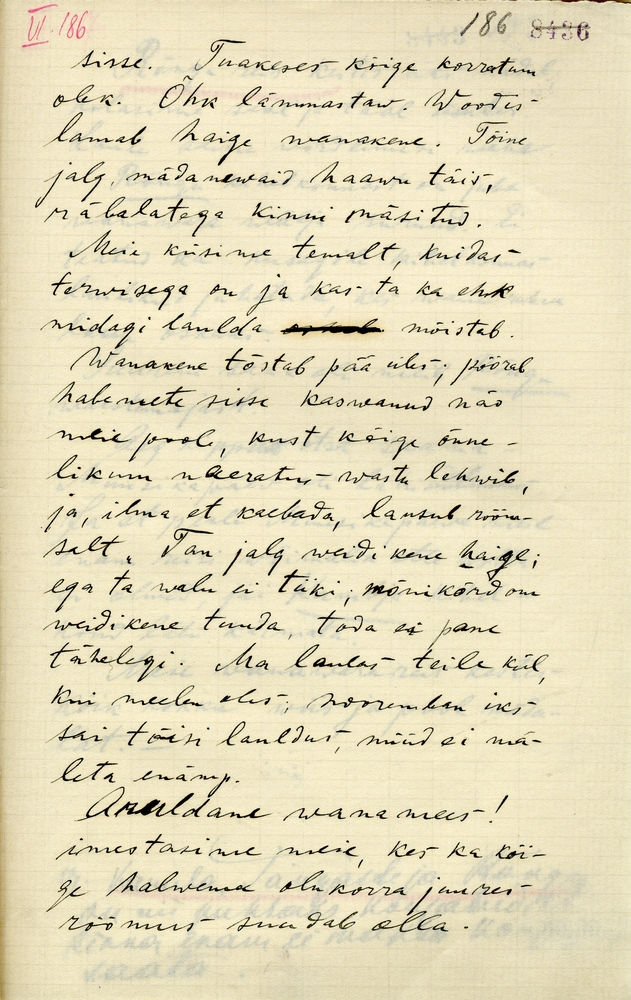 VI. 186
186 8436
sisse. Tuakeses kõige korratum
olek. Õhk lämmastaw. Woodis
lamab haige wanakene. Tõine
jalg, mädanewaid haawu täis,
räbalatega kinni mäsitud.
Meie küsime temalt, kuidas
terwisega on ja kas ta ka ehk
midagi laulda mõistab.
Wanakene tõstab pää üles; pöörab
habemete sisse kaswanud näo
meie poole, kust kõige õnne-
likum naeratus wastu lehwib,
ja, ilma et kaebada, lausub rõõm-
salt „Tan jalg weidikene haige;
ega ta walu ei tiiki; mõnikõrd om
weidikene tunda, toda ei pane
tähelegi. Ma laulas teile kül,
kui meelen oles; nooremban iks
sai tõisi lauldus, nüüd ei mä-
leta enämp.
Aruldane wanamees!
imestasime meie, kes ka kõi-
ge halwema olukorra juures
rõõmus suudab olla.